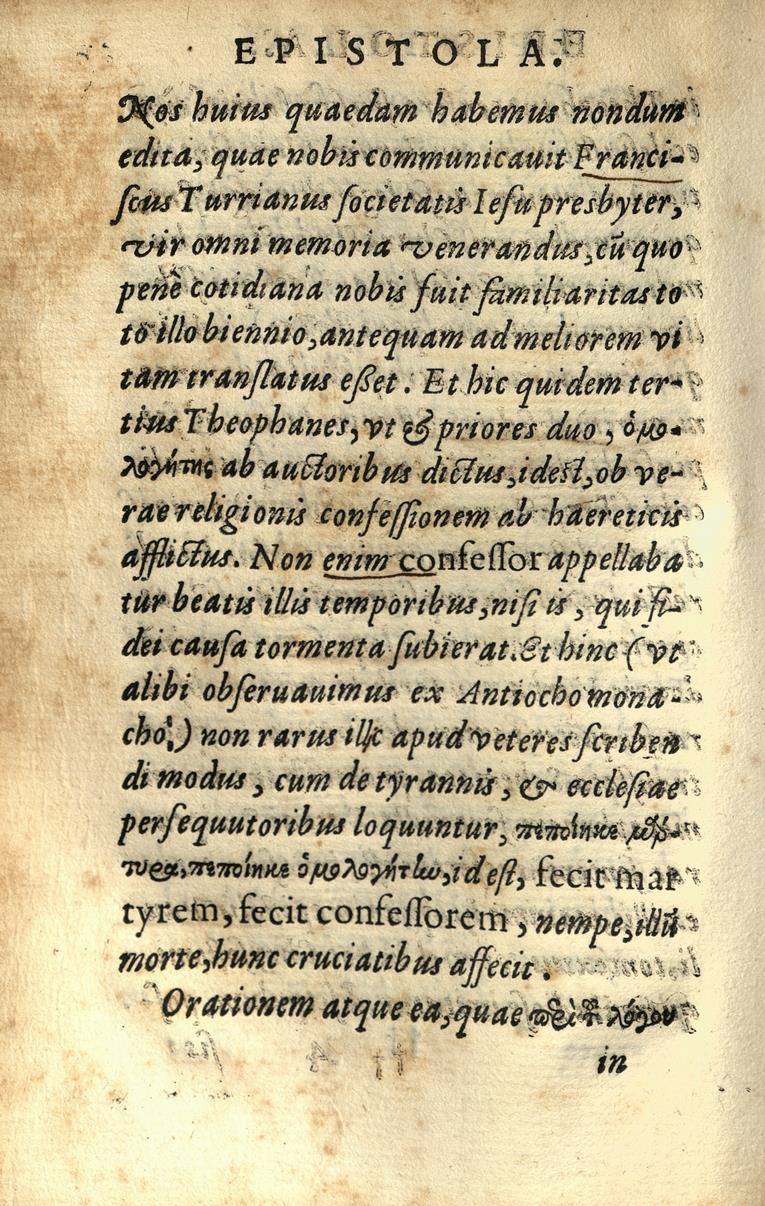 EPISTOLA.
Nos huius quaedam habemus nondum
edita, quae nobis communicauit Franci-
ſcus Turrianus ſocietatis Ieſu presbyter,
vir omni memoria venerandus, cū quo
penè cotidiana nobis fuit familiaritas to
to illo biennio, antequam ad meliorem vi
tam tranſlatus eſset. Et hic quidem ter-
tius Theophanes, vt & priores duo, ὁμο-
λογήτης ab auctoribus dictus, id est, ob ve-
rae religionis confeſſionem ab haereticis
afflictus. Non enim confeſſor appellaba
tur beatis illis temporibus, niſi is, qui fi-
dei cauſa tormenta ſubierat. Et hinc (vt
alibi obſeruauimus ex Antiocho mona-
cho,) non rarus illic apud veteres ſcriben
di modus, cum de tyrannis, & eccleſiae
perſequutoribus loquuntur, πεποίηκε μάρ-
τυρα, πεποίηκε ὁμολογήτην, id eſt, fecit mar
tyrem, fecit confeſſorem, nempe, illū
morte, hunc cruciatibus affecit.
Orationem atque ea, quae περὶ τοῦ λόγου
in